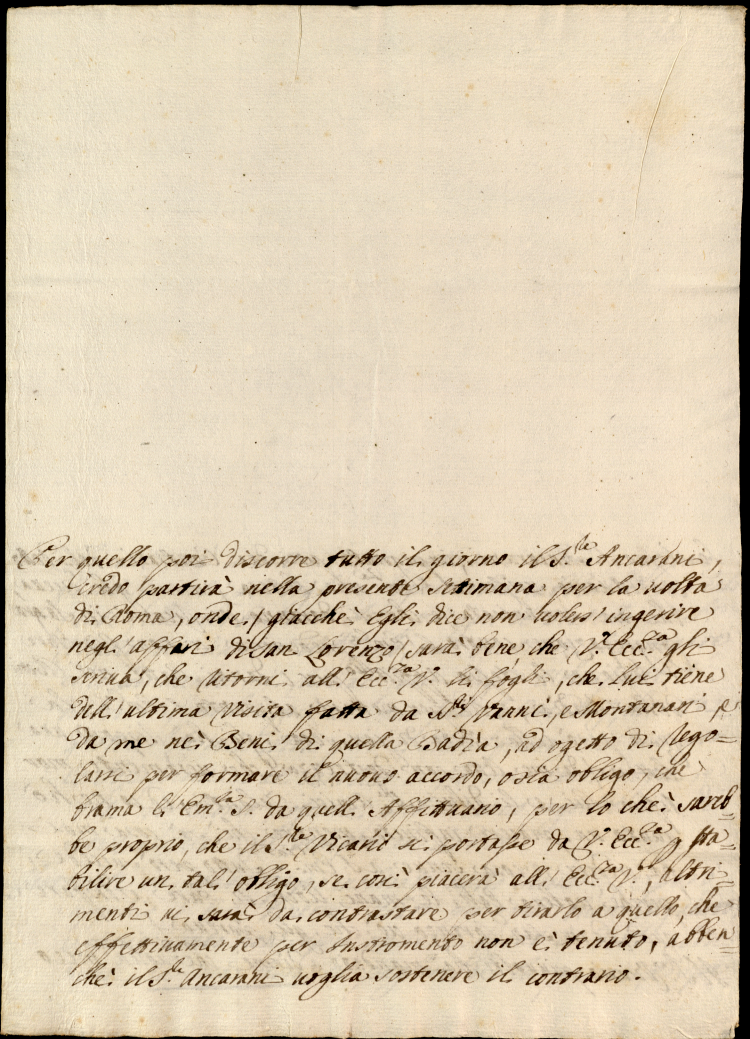 Per quello poi discorre tutto il giorno il S.re Ancarani,
credo partirà nella presente settimana per la uolta
di Roma, onde / giacchè Egli dice non uoler' ingerire
negl' affari di San Lorenzo / sarà bene, che V.ra Ecc.za gli
scriua, che ritorni all' Ecc.za V. li fogli, che lui tiene
dell' ultima Visita fatta da S.ri Vanni, e Montanari, e
da me ne' Beni di quella Badia, ad ogetto di rego=
larsi per formare il nuouo accordo, o sia obligo, che
brama l' Em.za S. da quell' Affittuario, per lo che sareb=
be proprio, che il S.re Vicario si portasse da V. Ecc.za p sta=
bilire un tal' obligo, se così piacerà all' Ecc.za V., altri=
menti ui sarà da contrastare per tirarlo a quello, che
effettiuamente per Instromento non è tenuto, abben=
chè il S.re Ancarani uoglia sostenere il contrario.